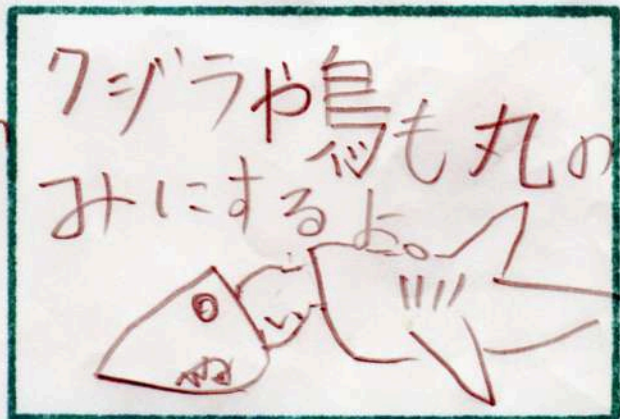 クジラや鳥も丸の
みにするよ。